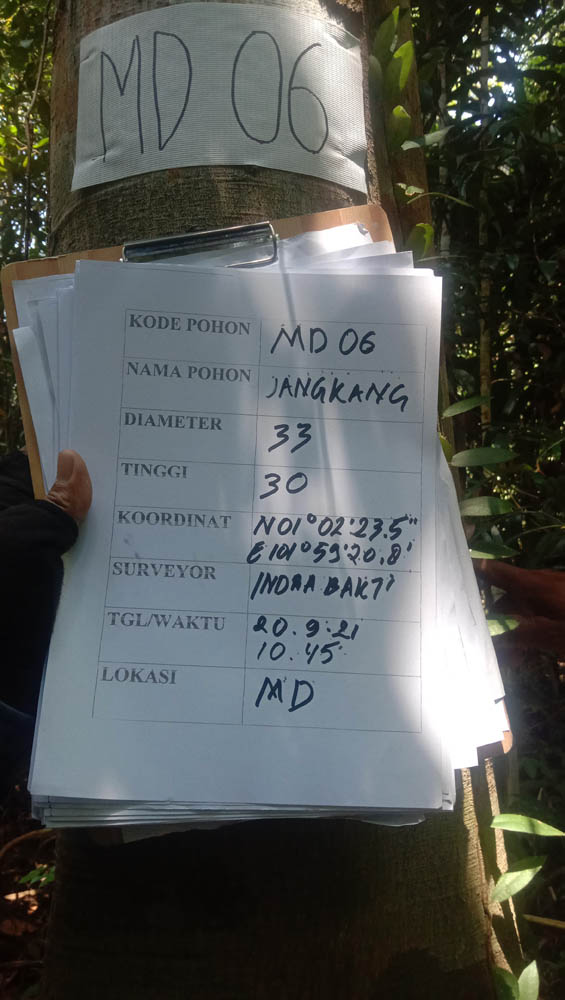 MD 06
KODE POHON MD 06
NAMA POHON JANGKANG
DIAMETER 33
TINGGI 30
KOORDINAT N01°02'23.5"
E101°59'20.8'
SURVEYOR INDRA BAKTI
TGL/WAKTU 20.9.21
10.45
LOKASI MD